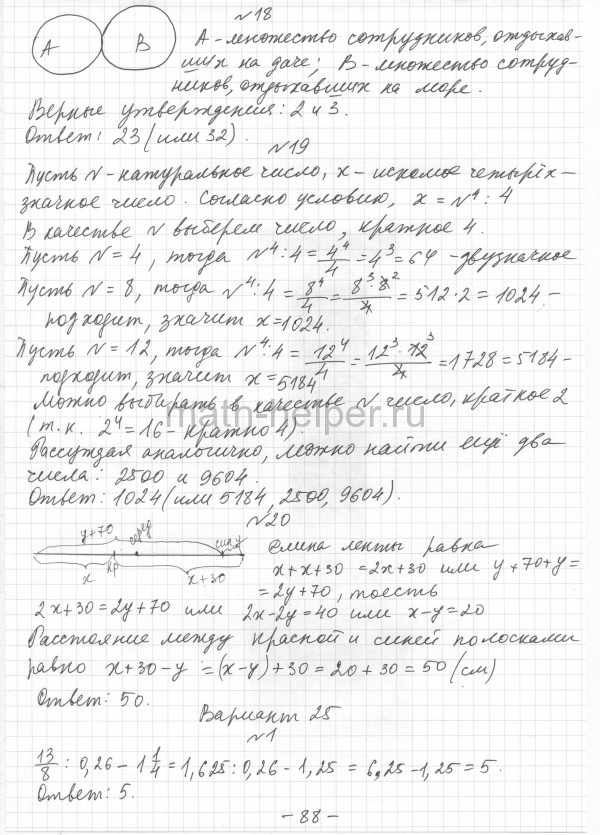 №18
A B A - множество сотрудников, отдыхав-
ших на даче; B - множество сотруд-
ников, отдыхавших на море.
Верные утверждения: 2 и 3.
Ответ: 23 (или 32).
№19
Пусть N - натуральное число, x - искомое четырёх-
значное число. Согласно условию, x = N⁴ : 4
В качестве N выберем число, кратное 4.
Пусть N = 4, тогда N⁴:4 = 4⁴/4 = 4³ = 64 - двузначное
Пусть N = 8, тогда N⁴:4 = 8⁴/4 = 8³·8²/4 = 512·2 = 1024 -
подходит, значит x = 1024.
Пусть N = 12, тогда N⁴:4 = 12⁴/4 = 12³·12³/4 = 1728 = 5184 -
подходит, значит x = 5184
Можно выбирать в качестве N число, кратное 2
math-helper.ru
(т.к. 2⁴ = 16 - кратно 4).
Рассуждая аналогично, можно найти ещё два
числа: 2500 и 9604.
Ответ: 1024 (или 5184, 2500, 9604).
№20
y+70 серед син y
x кр x+30
Длина ленты равна
x+x+30 = 2x+30 или y+70+y =
= 2y+70, тоесть
2x+30 = 2y+70 или 2x-2y = 40 или x-y = 20
Расстояние между красной и синей полосками
равно x+30-y = (x-y)+30 = 20+30 = 50 (см)
Ответ: 50.
Вариант 25
№1
13/8 : 0,26 - 1 1/4 = 1,625 : 0,26 - 1,25 = 6,25 - 1,25 = 5.
Ответ: 5.
- 88 -